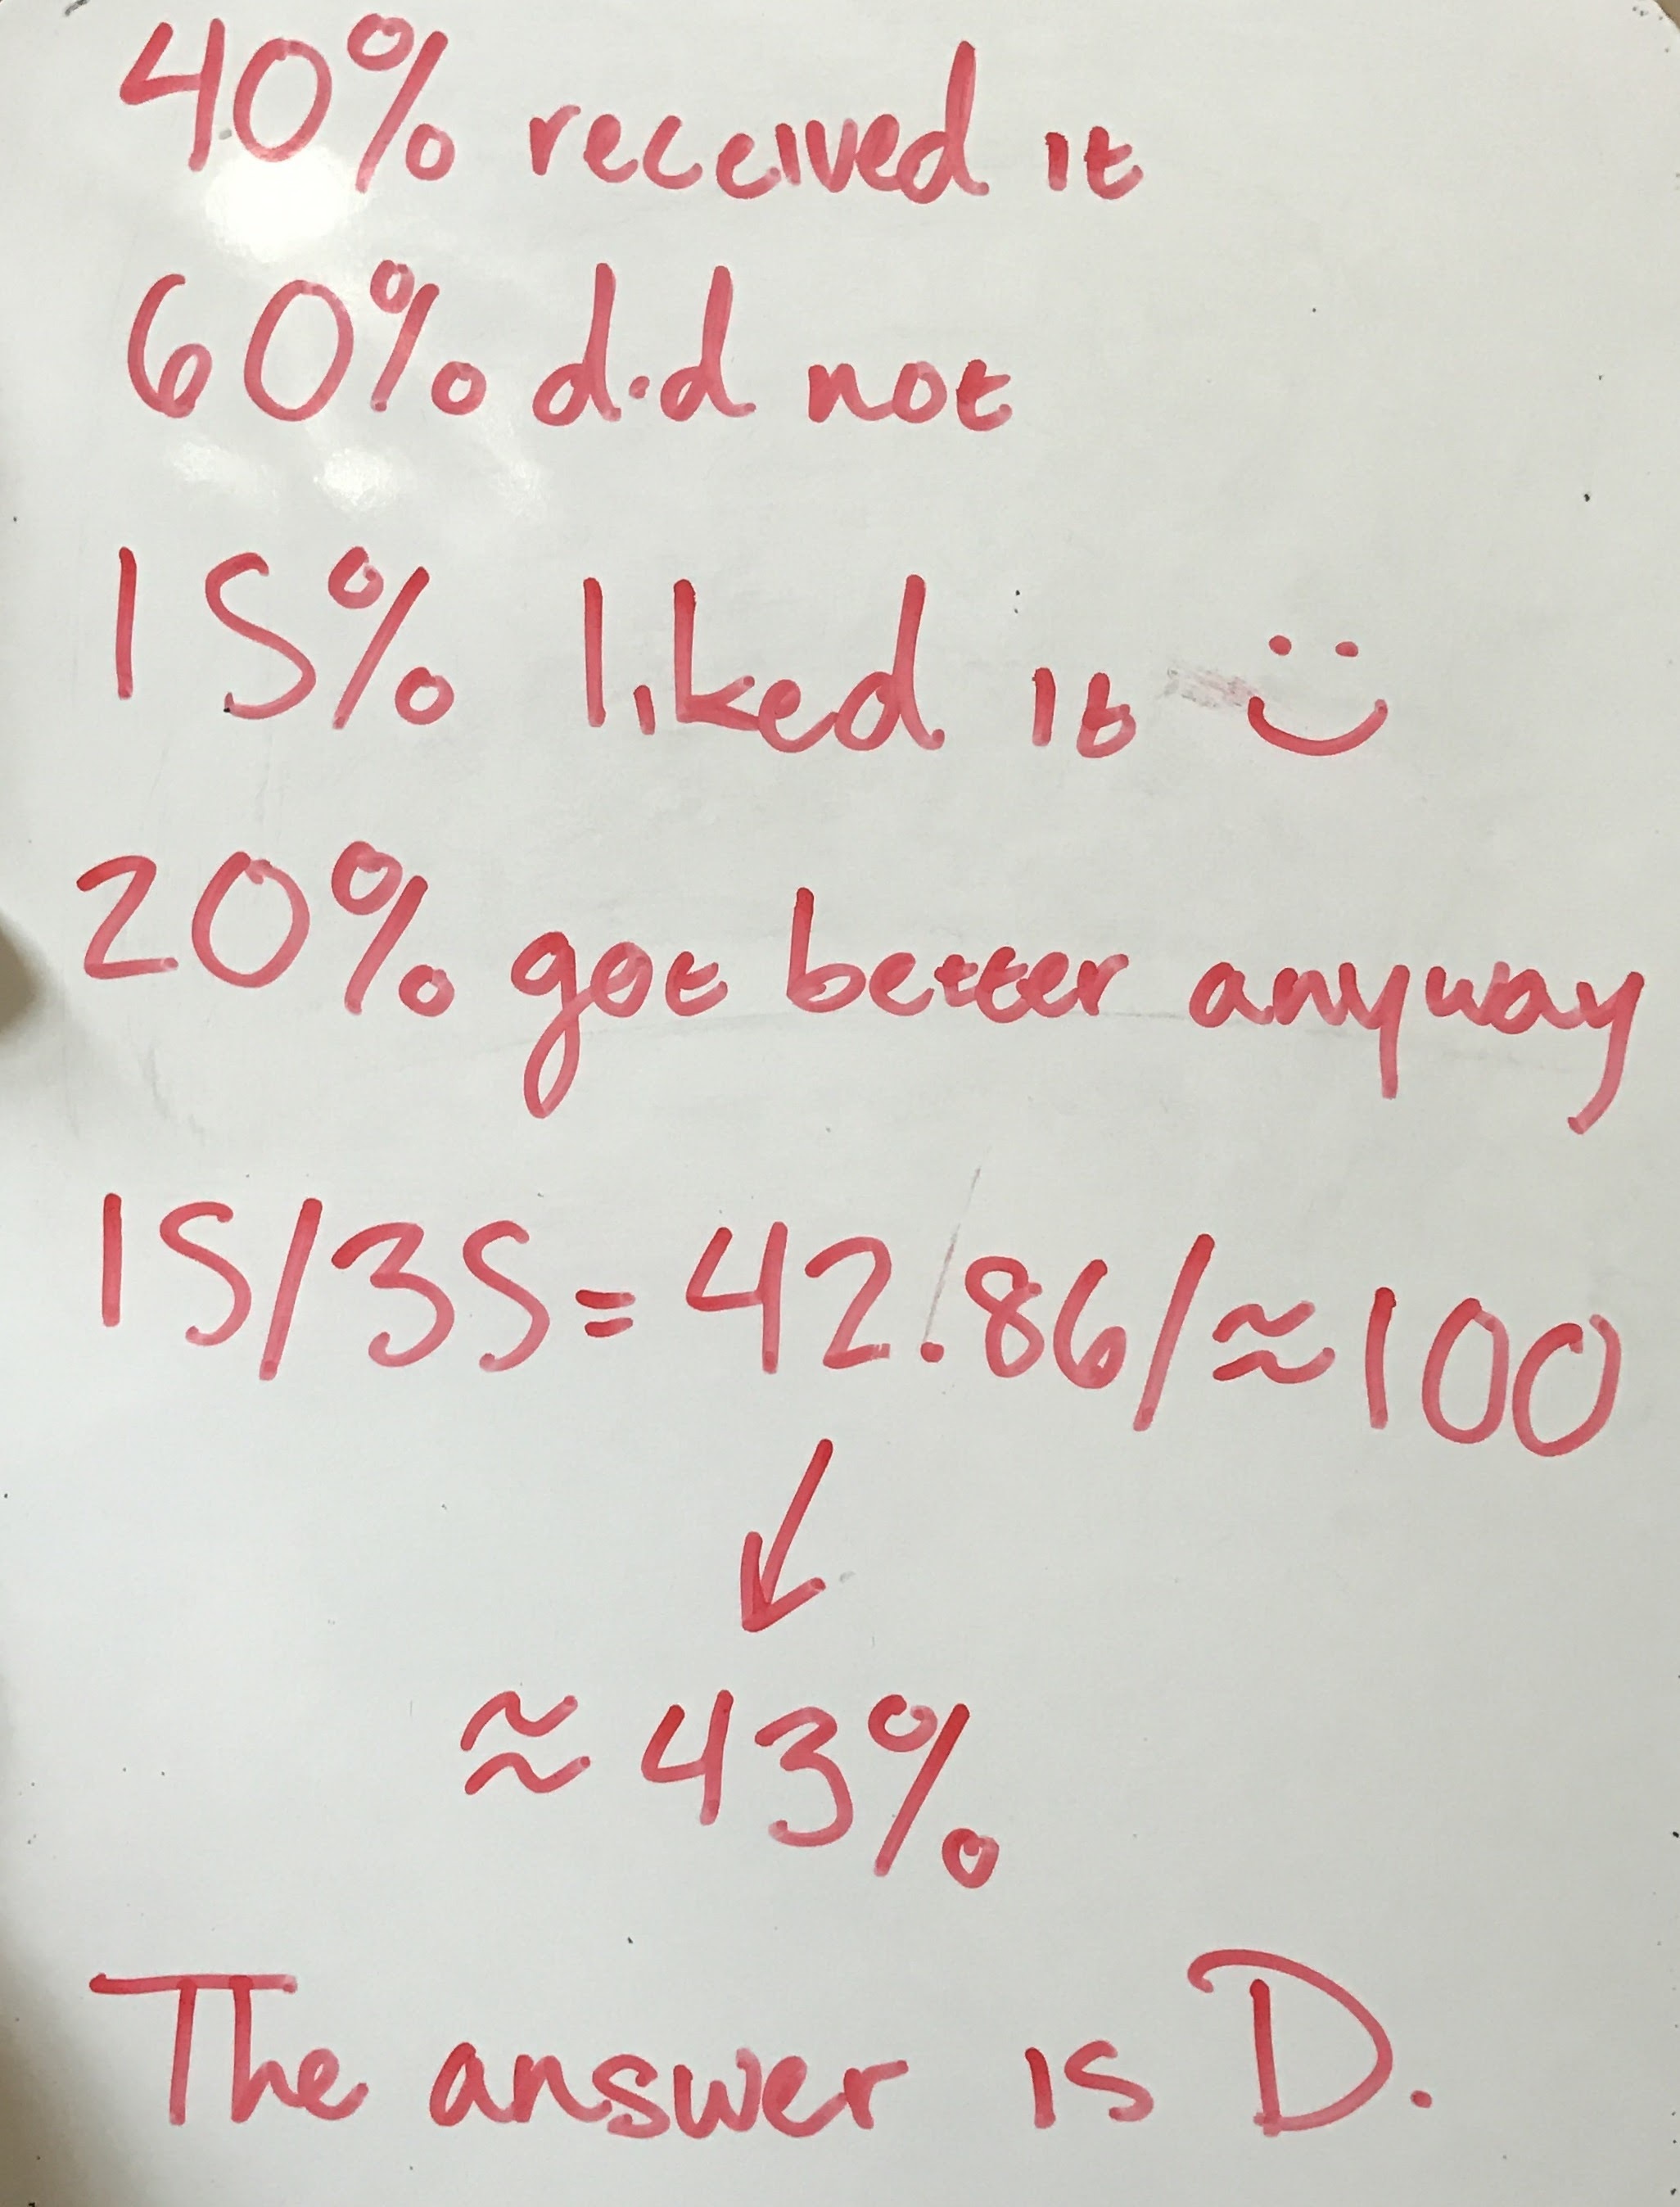 40% received it
60% did not
15% liked it
20% got better anyway
15/35=42.86/≈100
≈43%
The answer is D.